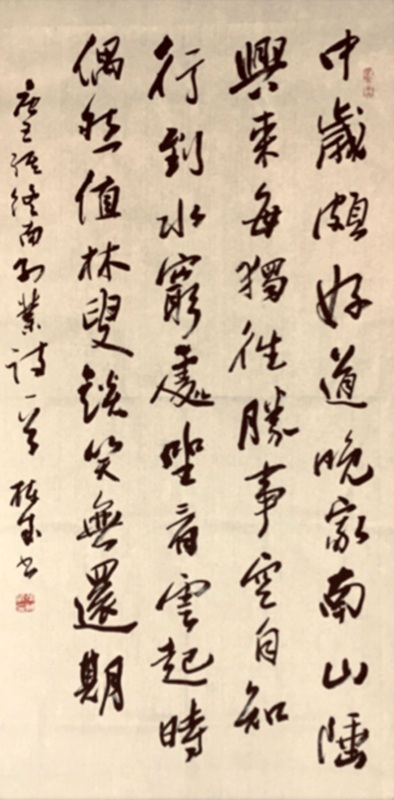 中歲頗好道晚家南山陲
興來每獨往勝事空自知
行到水窮處坐看雲起時
偶然值林叟談笑無還期
唐王維終南別業詩一首 书